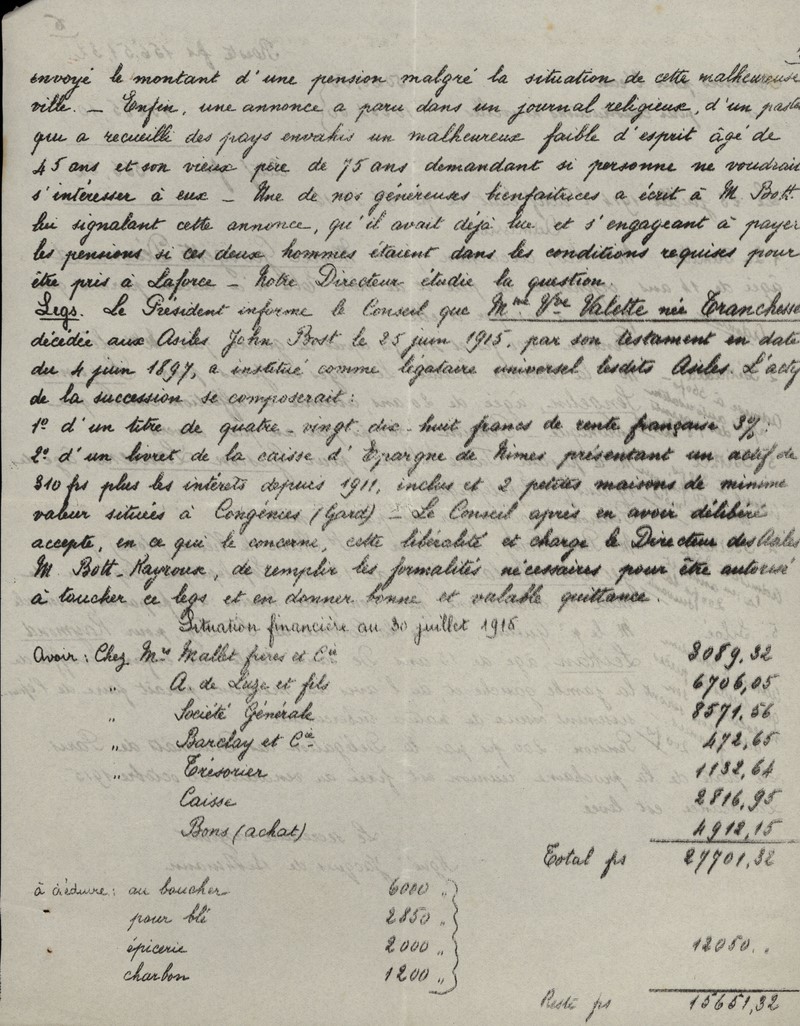 envoyé le montant d'une pension malgré la situation de cette malheureuse
ville. _ Enfin, une annonce a paru dans un journal religieux, d'un paste
qui a recueilli des pays envahis un malheureux faible d'esprit âgé de
45 ans et son vieux père de 75 ans demandant si personne ne voudrai
s'intéresser à eux _ Une de nos généreuses bienfaitrices a écrit à M Bott
lui signalant cette annonce, qu'il avait déjà lue et s'engageant à payer
les pensions si ces deux hommes étaient dans les conditions requises pour
être pris à Laforce _ Notre Directeur étudie la question.
Legs. Le Président informe le Conseil que Mme Vve Valette née Tranchesse
décédée aux Asiles John Bost le 25 juin 1915, par son testament en date
du 4 juin 1897, a institué comme légataire universel lesdits Asiles. L'actif
de la succession se composerait :
1° d'un titre de quatre-vingt dix-huit francs de rente française 3%.
2° d'un livret de la caisse d'Epargne de Nîmes présentant un actif de
310 frs plus les intérêts depuis 1911, inclus et 2 petites maisons de minime
valeur situées à Congénies (Gard) _ Le Conseil après en avoir délibéré
accepte, en ce qui le concerne, cette libéralité et charge le Directeur des Asiles
M. Bott-Kayroux, de remplir les formalités nécessaires pour être autorisé
à toucher ce legs et en donner bonne et valable quittance.
Situation financière au 30 juillet 1915
Avoir : Chez Mrs Mallet frères et Cie 3089,32
" A. de Luze et fils 6706,05
" Société Générale 8571,56
" Barclay et Cie 472,65
" Trésorier 1132,64
Caisse 2816,95
Bons (achat) 4912,15
Total frs 27701,32
à déduire : au boucher 6000 "
pour blé 2850 "
épicerie 2000 " 12050. "
charbon 1200 "
Reste frs 15651,32